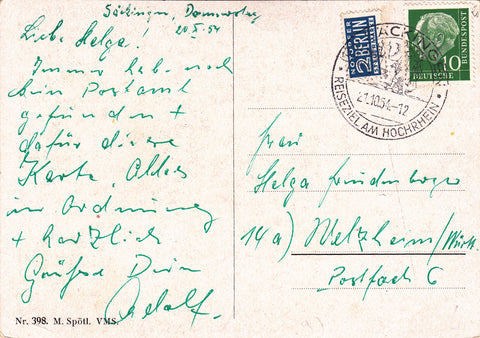 Säckingen, Donnerstag
20. X. 54
Liebe Helga!
Immer hab noch
kein Postamt
gefunden +
dafür diese
Karte. Alles
in Ordnung
+ herzlich
Grüße Dein
Adolf.
Nr. 398. M. Spötl. VMS.
NOTOPFER
2 BERLIN
STEUERMARKE
DEUTSCHE BUNDESPOST
10
SÄCKINGEN
21.10.54.-12
REISEZIEL AM HOCHRHEIN
Frau
Helga
14a) Welzheim/Württ.
Postfach 6